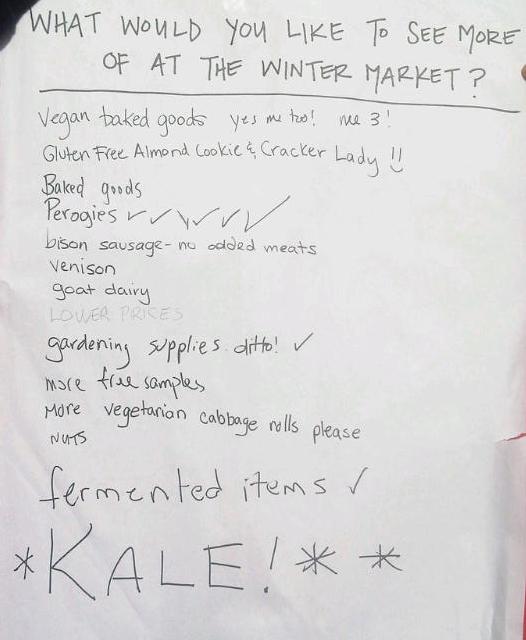 WHAT WOULD YOU LIKE TO SEE MORE
OF AT THE WINTER MARKET?
Vegan baked goods yes me too! me 3!
Gluten Free Almond Cookie & Cracker Lady !!
Baked goods
Perogies ✓✓✓✓✓✓
bison sausage - no added meats
venison
goat dairy
LOWER PRICES
gardening supplies. ditto! ✓
more free samples
More vegetarian cabbage rolls please
NUTS
fermented items ✓
*KALE!* *